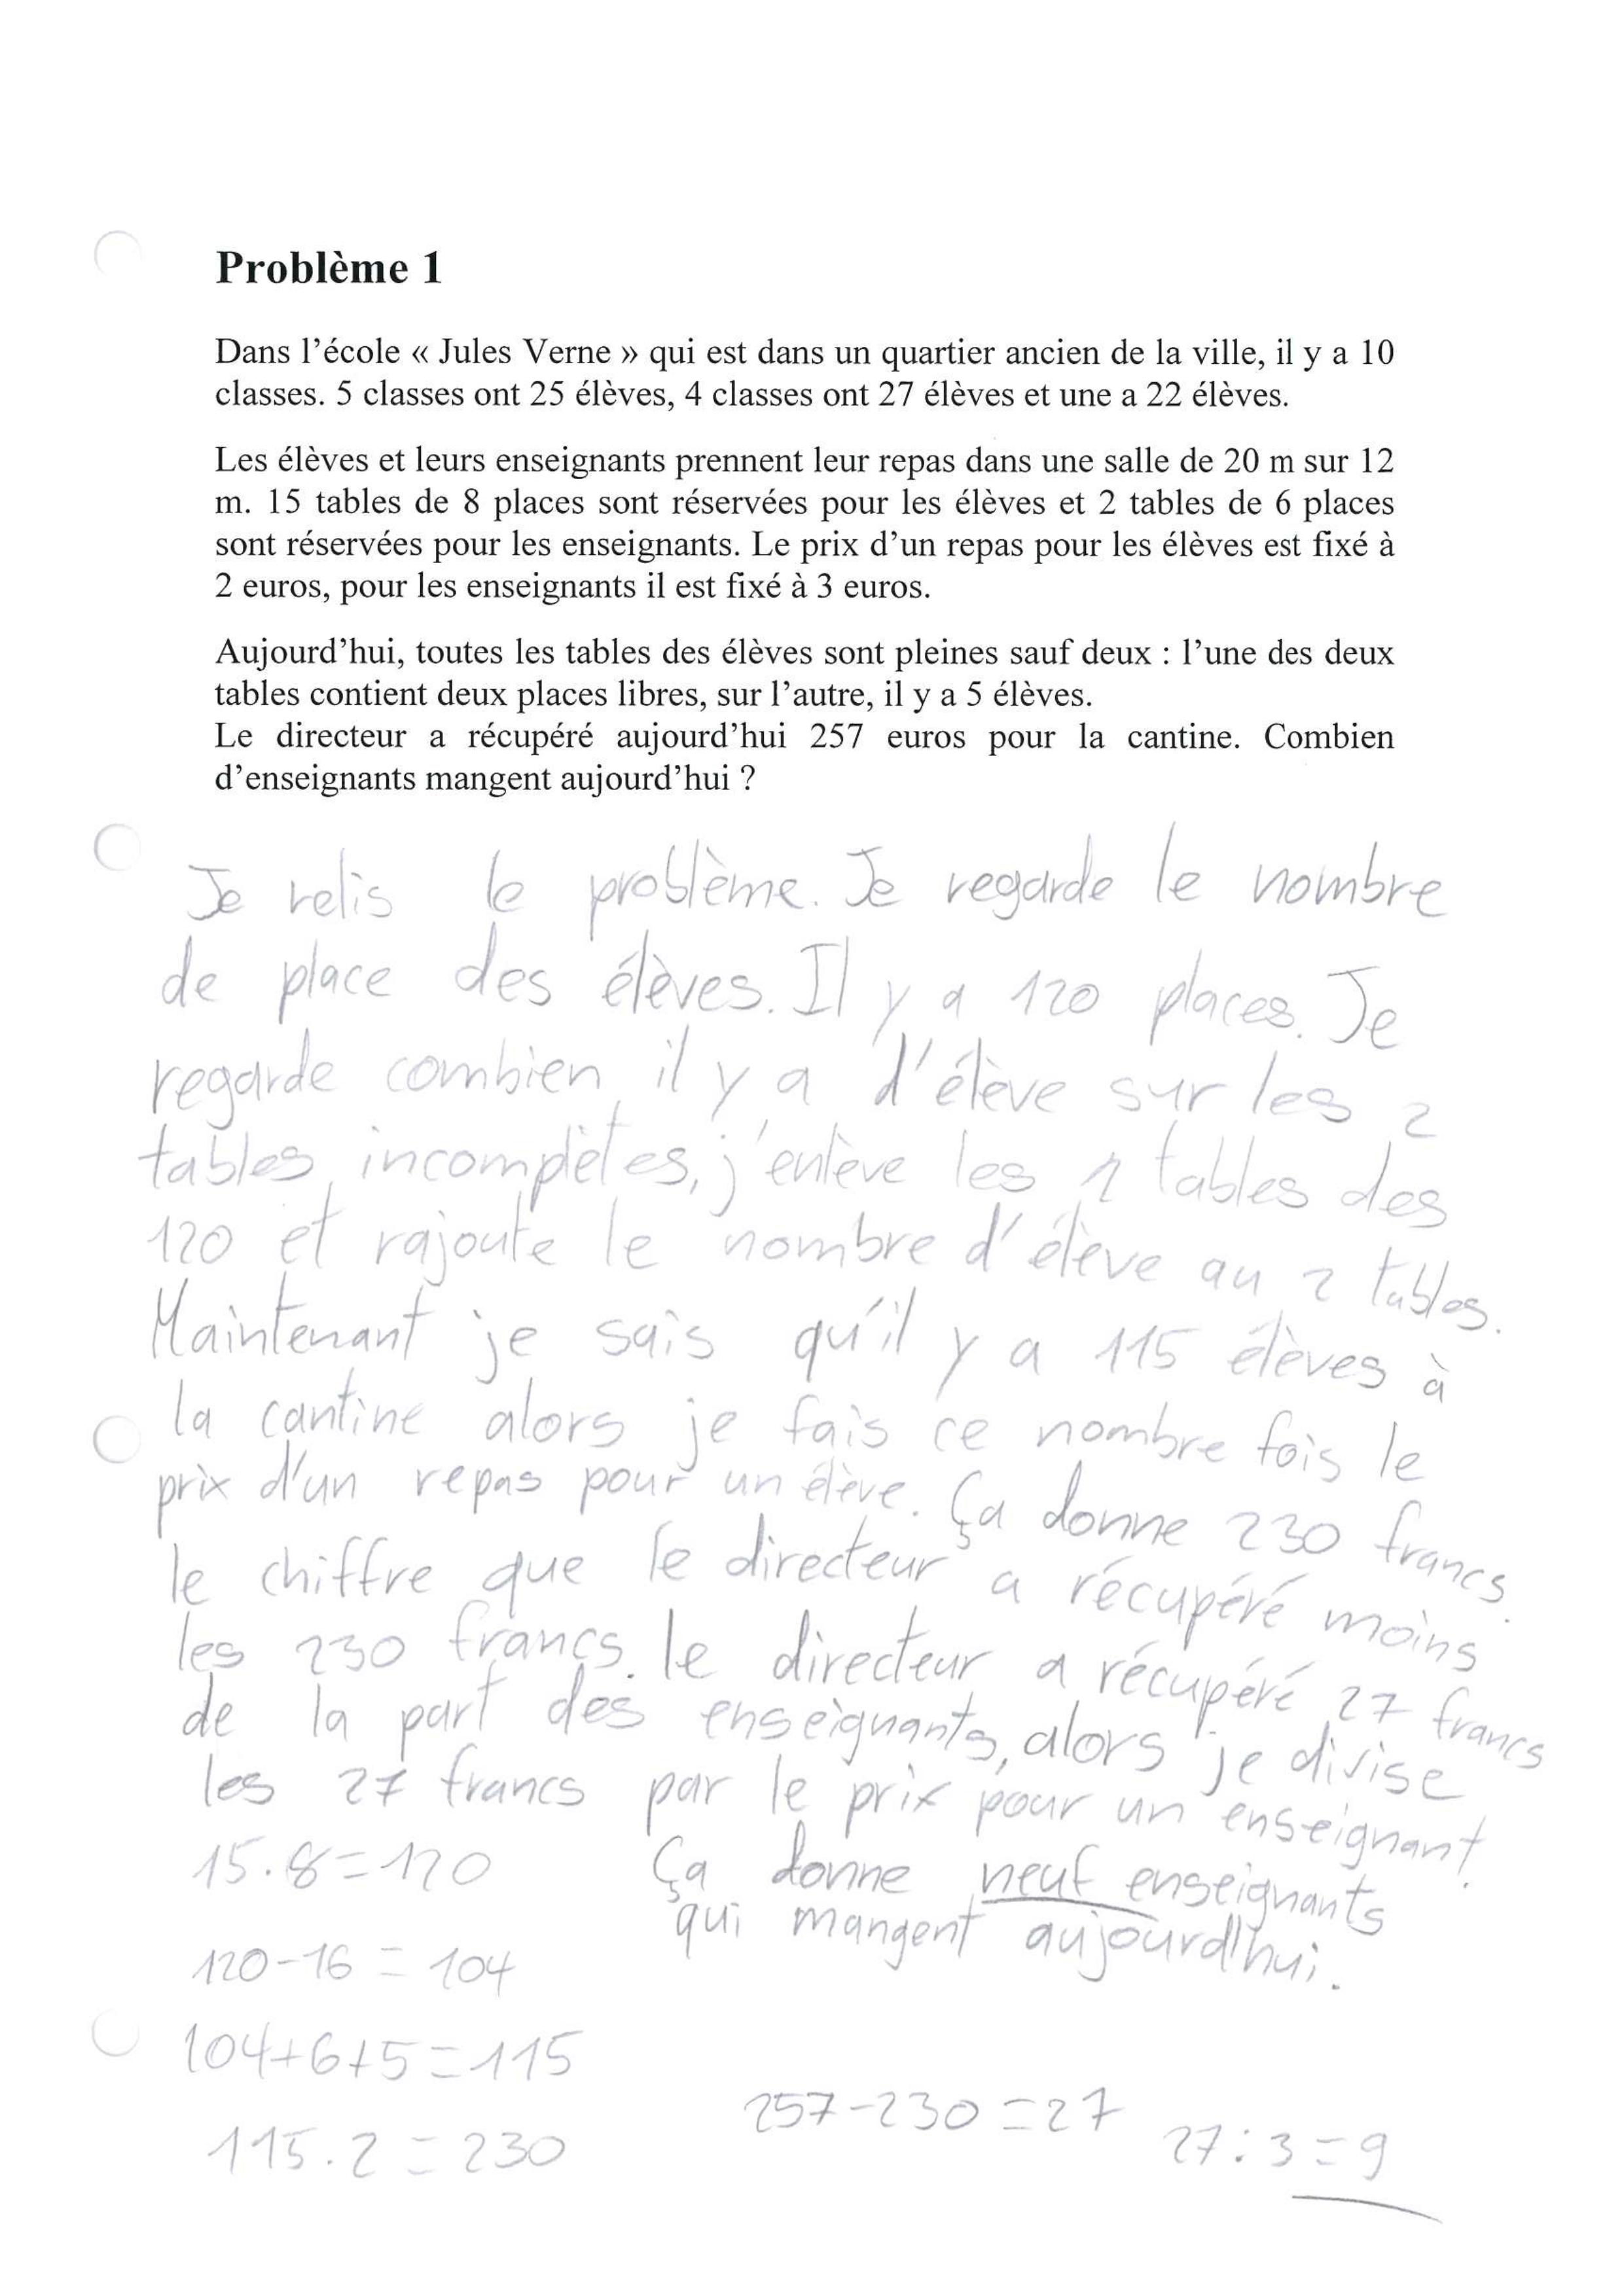 Problème 1
Dans l'école « Jules Verne » qui est dans un quartier ancien de la ville, il y a 10
classes. 5 classes ont 25 élèves, 4 classes ont 27 élèves et une a 22 élèves.
Les élèves et leurs enseignants prennent leur repas dans une salle de 20 m sur 12
m. 15 tables de 8 places sont réservées pour les élèves et 2 tables de 6 places
sont réservées pour les enseignants. Le prix d'un repas pour les élèves est fixé à
2 euros, pour les enseignants il est fixé à 3 euros.
Aujourd'hui, toutes les tables des élèves sont pleines sauf deux : l'une des deux
tables contient deux places libres, sur l'autre, il y a 5 élèves.
Le directeur a récupéré aujourd'hui 257 euros pour la cantine. Combien
d'enseignants mangent aujourd'hui ?
Je relis le problème. Je regarde le nombre
de place des élèves. Il y a 120 places. Je
regarde combien il y a d'élève sur les 2
tables incomplètes, j'enlève les 2 tables des
120 et rajoute le nombre d'élève au 2 tables.
Maintenant je sais qu'il y a 115 élèves à
la cantine alors je fais ce nombre fois le
prix d'un repas pour un élève. Ça donne 230 francs.
le chiffre que le directeur a récupéré moins
les 230 francs. le directeur a récupéré 27 francs
de la part des enseignants, alors je divise
les 27 francs par le prix pour un enseignant.
Ça donne neuf enseignants
qui mangent aujourd'hui.
15.8=120
120-16=104
104+6+5=115
115.2=230
257-230=27
27:3=9